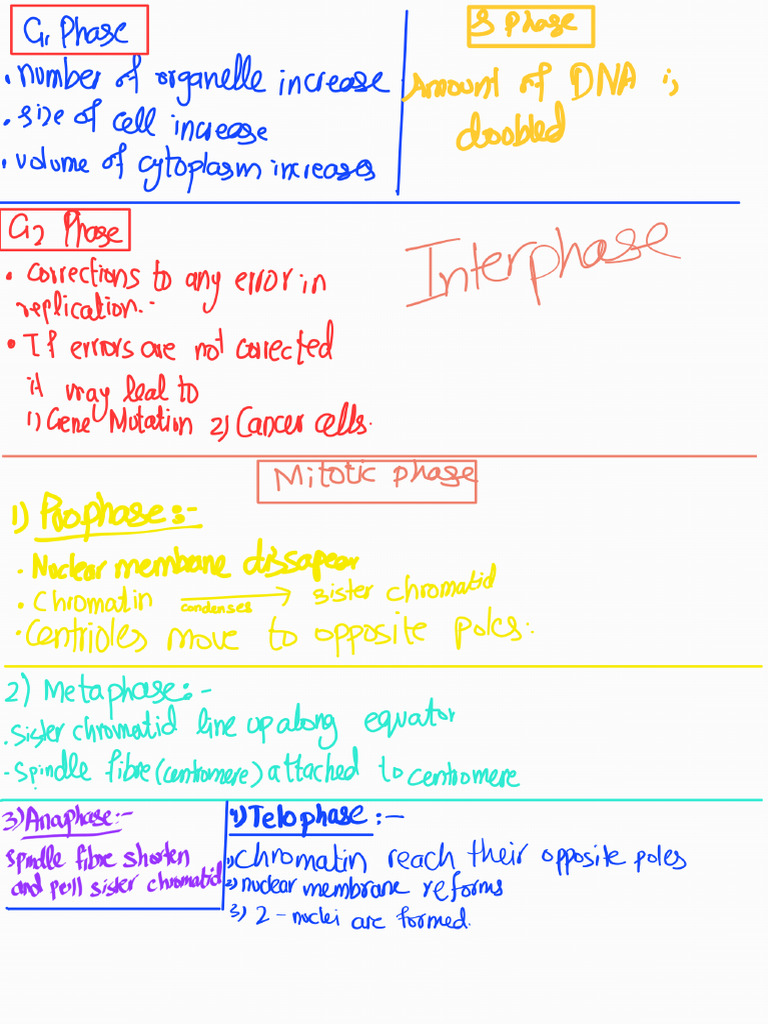 G1 Phase
• number of organelle increase
• size of cell increase
• volume of cytoplasm increases
S Phase
Amount of DNA is
doobled
G2 Phase
• Corrections to any error in
replication.-
• If errors are not corrected
it may leal to
1) Gene Mutation 2) Cancer cells.
Interphase
Mitotic phase
1) Prophase:-
• Nuclear membrane dissapear
• Chromatin condenses → sister chromatid
• Centrioles move to opposite poles:
2) Metaphase:-
• Sister chromatid line up along equator
- Spindle fibre (centromere) attached to centromere
3) Anaphase:-
Spindle fibre shorten
and pull sister chromatid
4) Telophase:-
1) Chromatin reach their opposite poles
2) nuclear membrane reforms
3) 2-nuclei are formed.